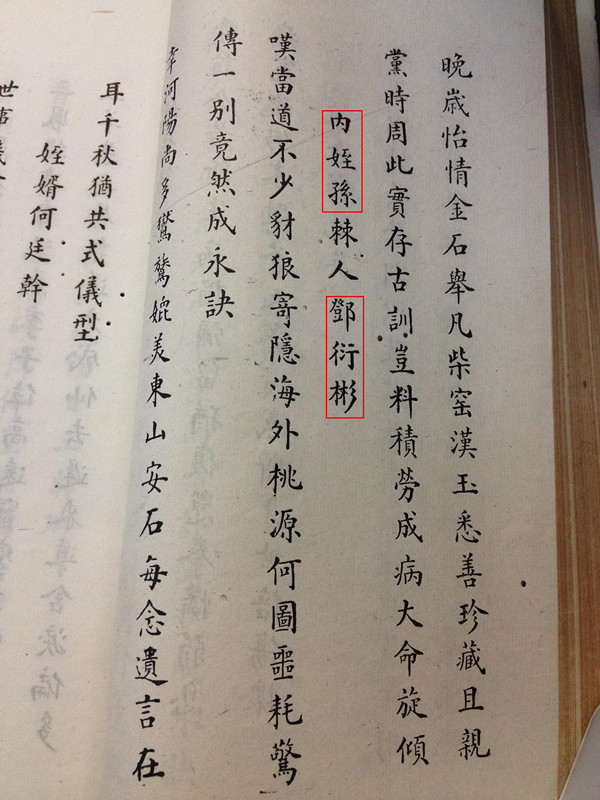 晚歲怡情金石舉凡柴窑漢玉悉善珍藏且親
黨時周此實存古訓豈料積勞成病大命旋傾
內姪孫棘人鄧衍彬
嘆當道不少豺狼寄隱海外桃源何圖噩耗驚
傳一別竟然成永訣
幸河陽尚多鸞鷟媲美東山安石每念遺言在
耳千秋猶共式儀型
姪婿何廷幹
世事